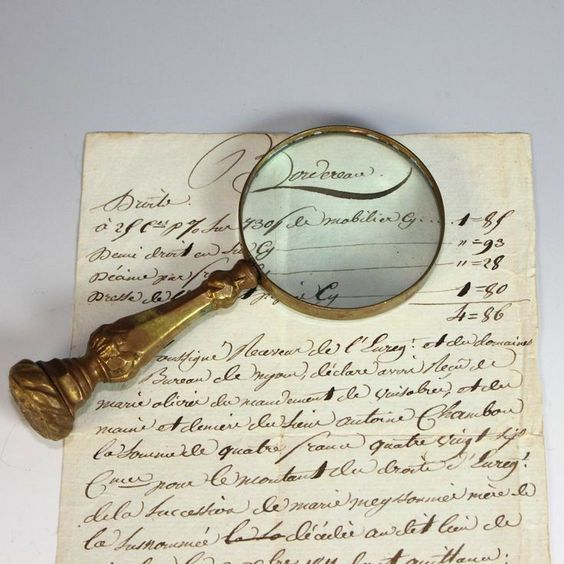 Bordereau.
Droite
à 25 C.es p % sur 730 f de mobilier Cy .... 1 = 85
Demi droit en sus Cy " = 93
Décime par f Cy " = 28
Presse de la Cy 1 = 80
4 = 86
soussigné Receveur de l'Enreg.t et du domaines
Bureau de nyon, déclare avoir Recu de
marie olivier du mandement de et du
maine et demeure du Sieur antoine Chambou
la Somme de quatre francs quatre vingt six
C.mes pour le montant du droite d'Enreg.t
de la Succession de marie meyssonnier mère de
la Susnommée décédée audit lieu de
le octobre dont quittance: